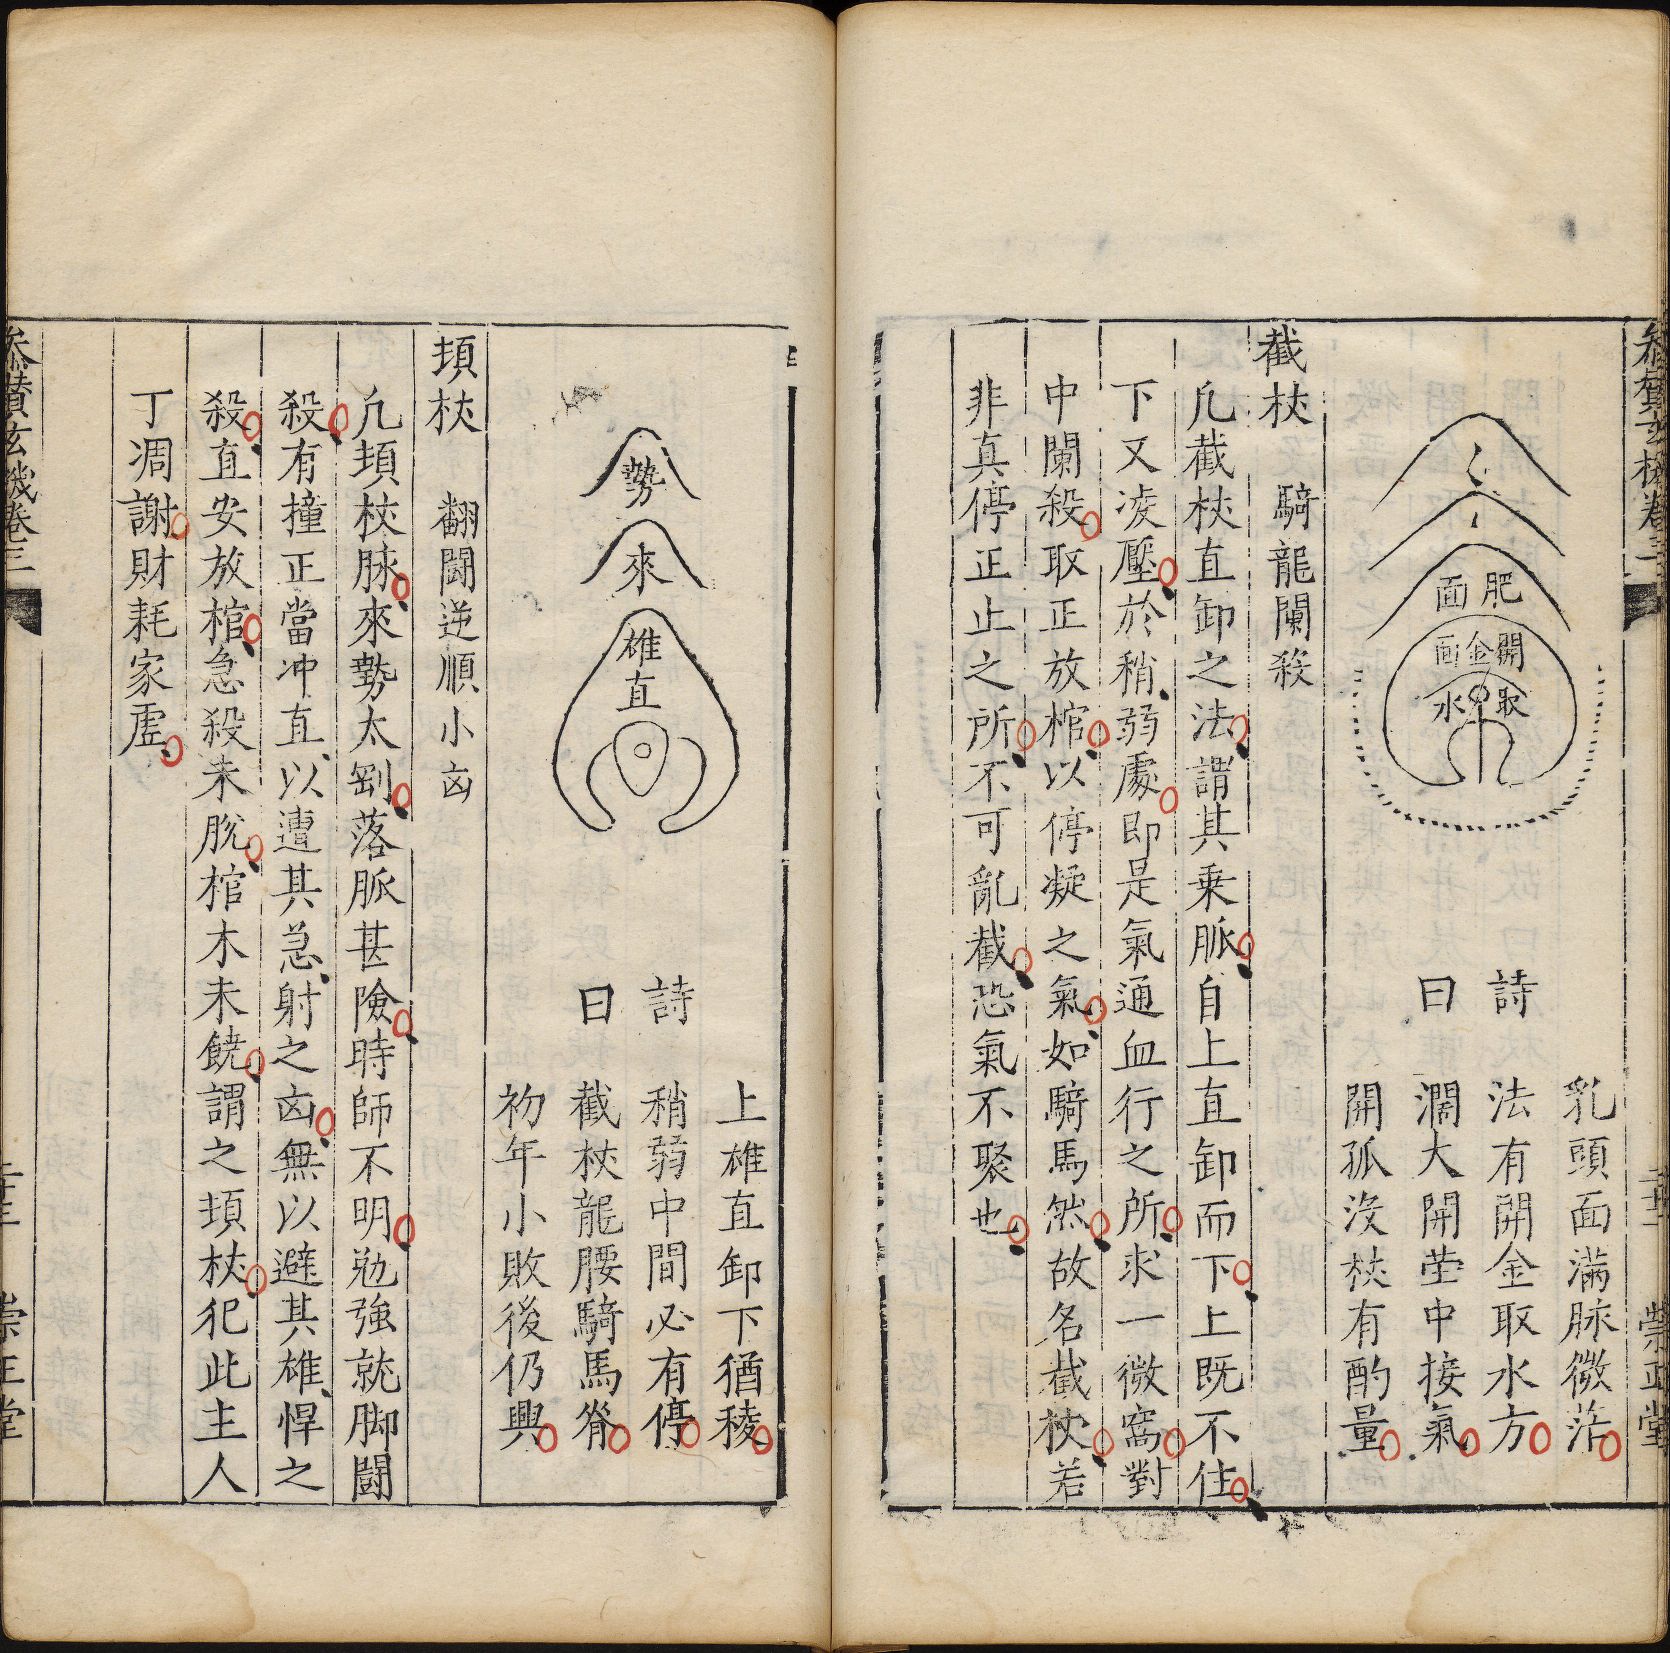 參贊玄機卷三
崇正堂
肥面
開金面
取水
詩曰
乳頭面滿脉微茫
法有開金取水方
濶大開塋中接氣
開孤沒杖有酌量
截杖　騎龍闌殺
凢截杖直卸之法謂其乗脈自上直卸而下上既不住
下又凌壓於稍弱處即是氣通血行之所求一微窩對
中闌殺取正放棺以停凝之氣如騎馬然故名截杖若
非真停正止之所不可亂截恐氣不聚也
勢
來
雄直
詩曰
上雄直卸下猶稜
稍弱中間必有停
截杖龍腰騎馬脊
初年小敗後仍興
頓杖　翻鬪逆順小凶
凢頓杖脉來勢太剛落脈甚險時師不明勉強就脚鬪
殺有撞正當冲直以遭其急射之凶無以避其雄悍之
殺直安放棺急殺未脫棺木未饒謂之頓杖犯此主人
丁凋謝財耗家虛
參贊玄機卷三
崇正堂